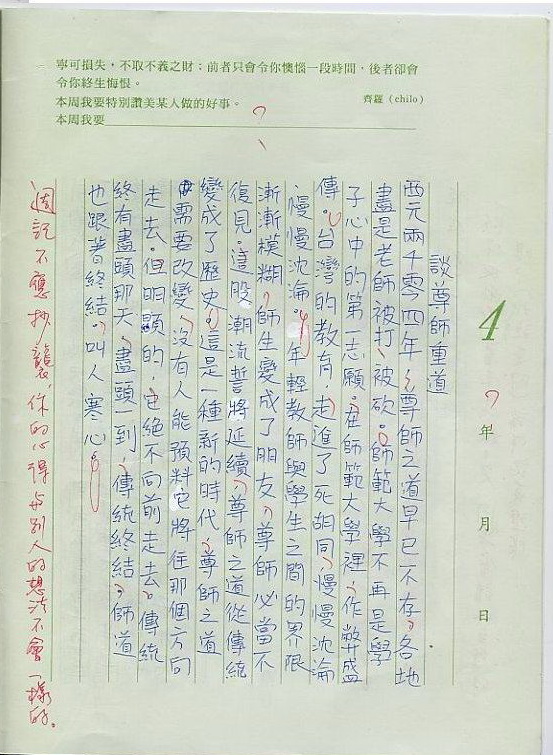 寧可損失，不取不義之財；前者只會令你懊惱一段時間，後者卻會
令你終生悔恨。
齊羅（chilo）
本周我要特別讚美某人做的好事。
本周我要
?
4
?年 月 日
談尊師重道
西元兩千零四年，尊師之道早已不存，各地
盡是老師被打、被砍。師範大學不再是學
子心中的第一志願。在師範大學裡，作弊盛
傳。台灣的教育，走進了死胡同，慢慢沈淪
，慢慢沈淪。年輕教師與學生之間的界限
漸漸模糊，師生變成了朋友，尊師必當不
復見。這股潮流誓將延續，尊師之道從傳統
變成了歷史，這是一種新的時代，尊師之道
需要改變，沒有人能預料它將往那個方向
走去。但明顯的，它絕不向前走去。傳統
終有盡頭那天，盡頭一到，傳統終結。師道
也跟著終結，叫人寒心。
週記不應抄襲，你的心得與別人的想法不會一樣的。